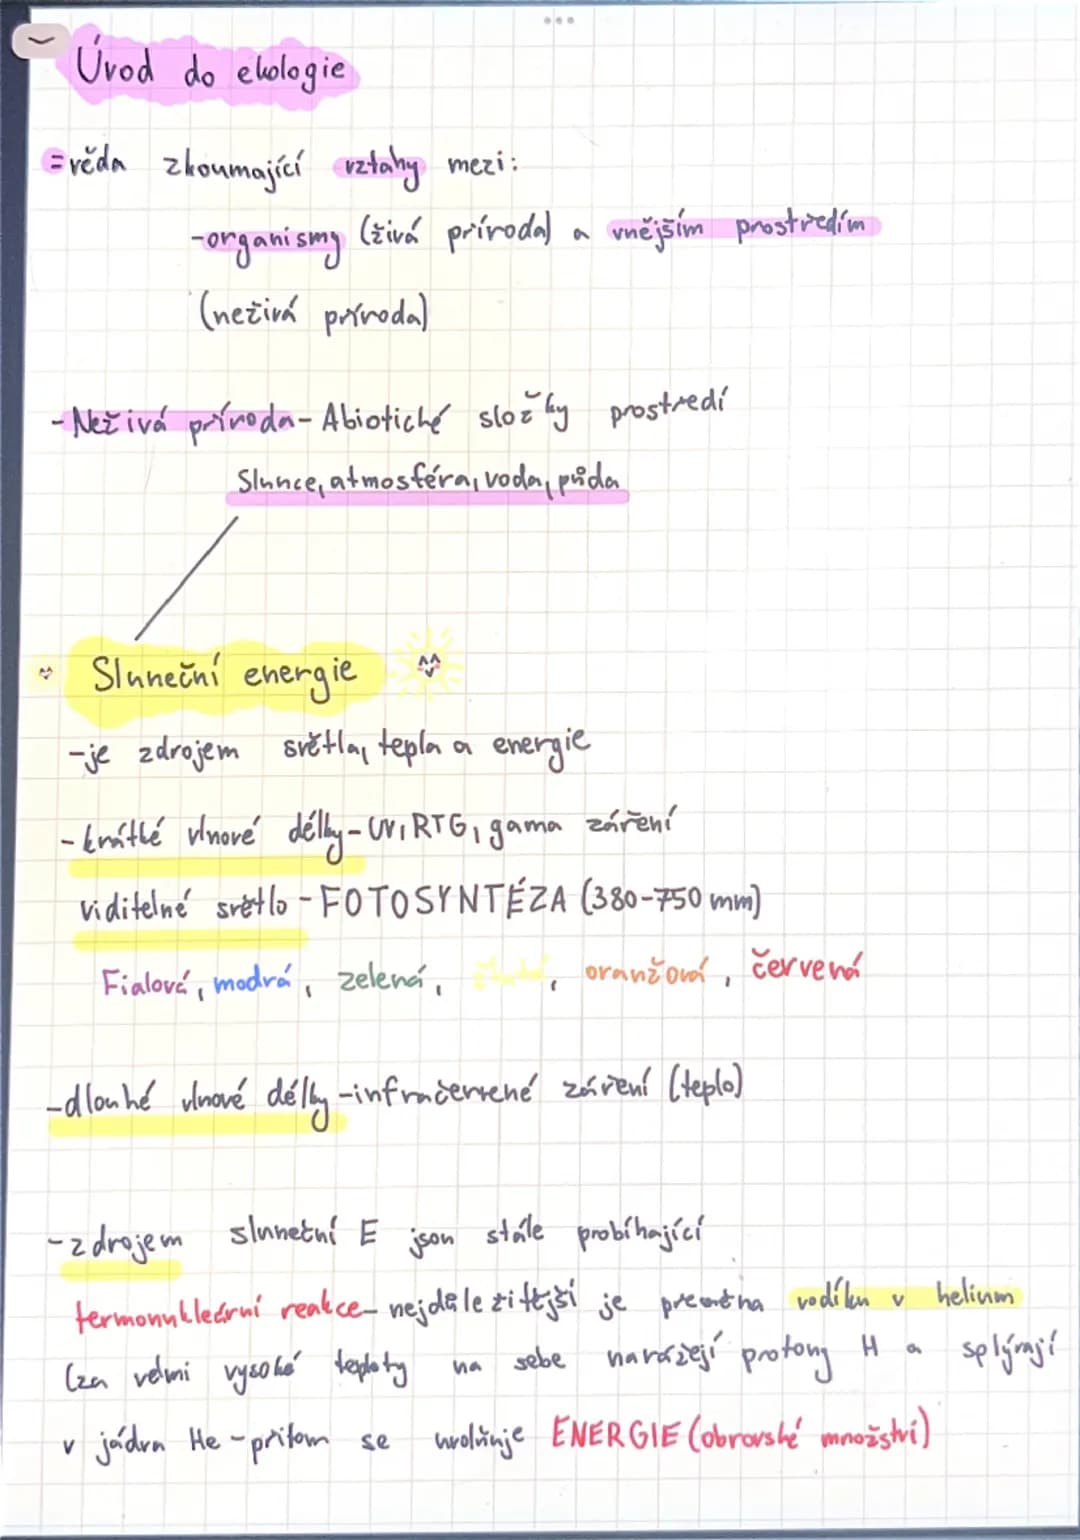 Úvod do ekologie
=věda zkoumající vztahy mezi:
-organismy (živá příroda) a vnějším prostředím
(neživá příroda)
-Neživá příroda-Abiotické složky prostředí
Slunce, atmosféra, voda, půda
Sluneční energie
-je zdrojem světla, tepla a energie
-krátké vlnové délky-UV, RTG, gama záření
viditelné světlo-FOTOSYNTÉZA (380-750 mm)
Fialová, modrá, zelená, žlutá, oranžová, červená
-dlouhé vlnové délky-infračervené záření (teplo)
-zdrojem sluneční E jsou stále probíhající
termonukleární reakce-nejdůležitější je přeměna vodíku v helium
(za velmi vysoké teploty na sebe narážejí protony H a splývají
v jádra He-přitom se uvolňuje ENERGIE (obrovské množství)